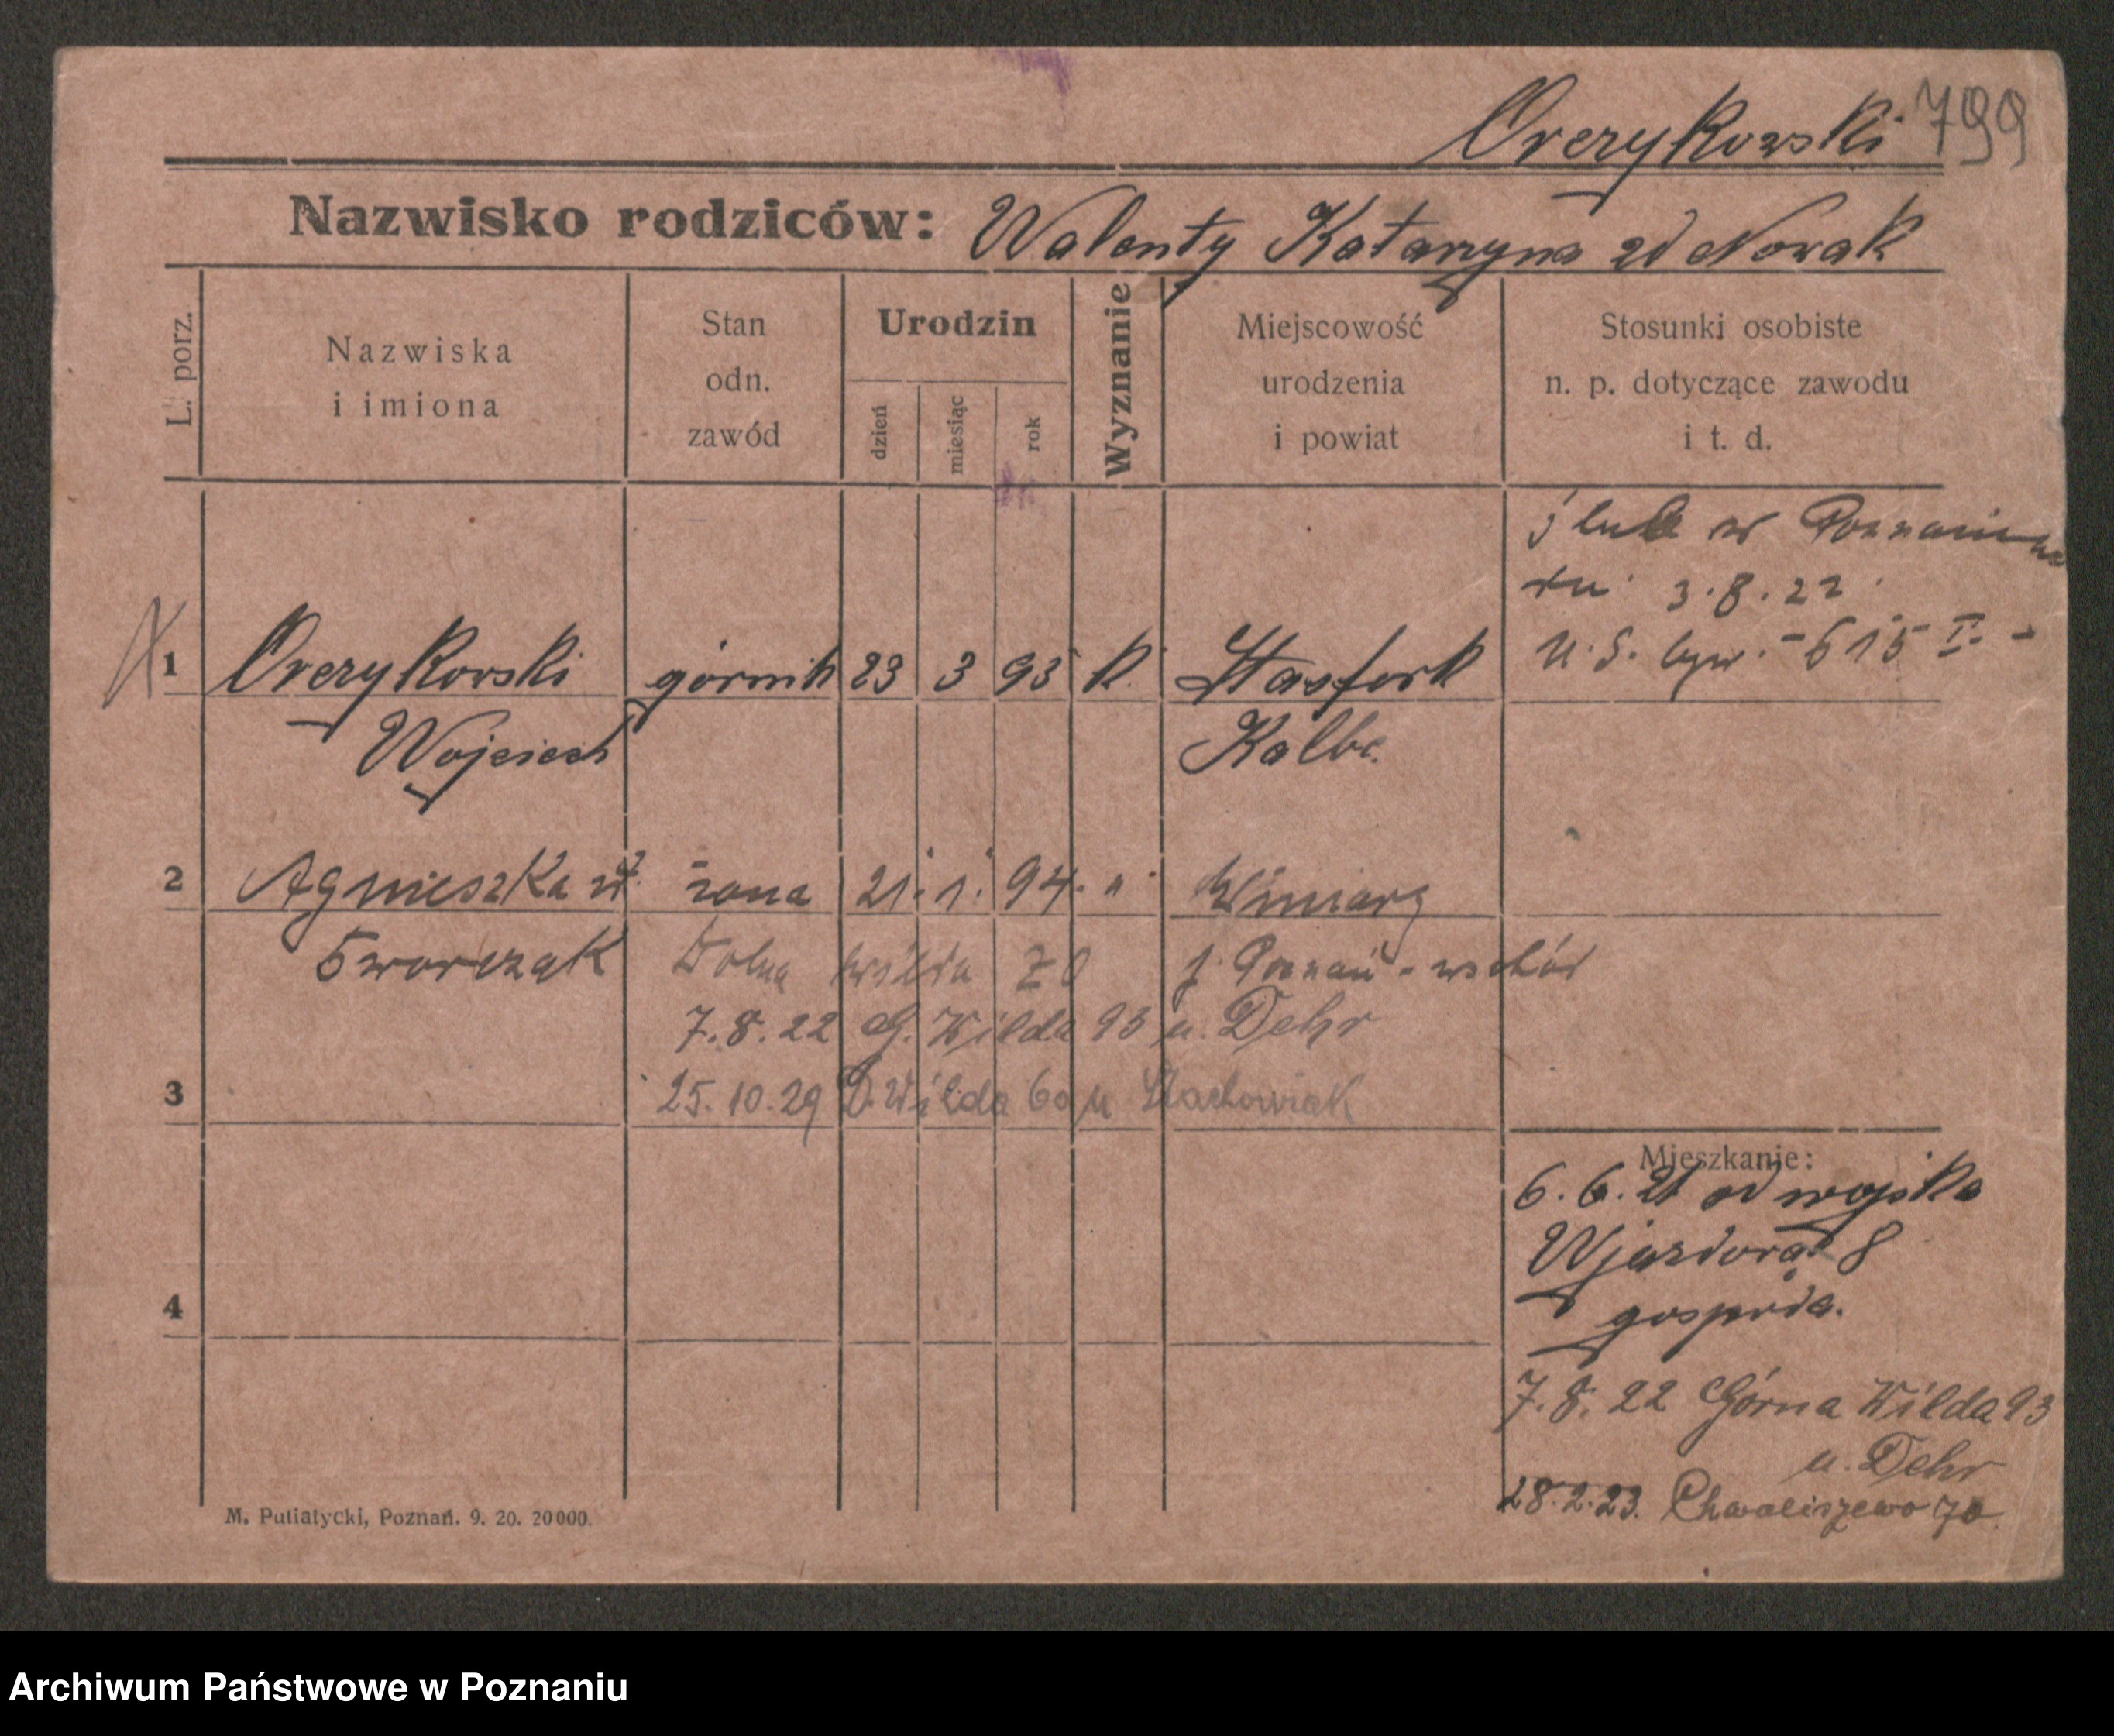 Owczykowski 799
Nazwisko rodziców: Walenty Katarzyna zd Nowak
L. porz.
Nazwiska
i imiona
Stan
odn.
zawód
Urodzin
dzień
miesiąc
rok
Wyznanie
Miejscowość
urodzenia
i powiat
Stosunki osobiste
n. p. dotyczące zawodu
i t. d.
ślub w Poznaniu
dn. 3.8.22.
U.S. 615 I.
1 górnik 23 3 93 k. Stasfort
Wojciech Kalbe.
2 Agnieszka zd. żona 21. 1. 94. " Winiary
Tworczak Dolna Wilda p. Poznań - wschód
7.8.22 G. Wilda 93 u. Dehr
3 25.10.29 D. Wilda 60 u Stachowiak
Mieszkanie:
6.6.21 od wojska
Wjazdowa 8
4 gospoda.
7.8.22 Górna Wilda 93
u. Dehr
28.2.23. Chwaliszewo 70.
M. Putiatycki, Poznań. 9. 20. 20000.
Archiwum Państwowe w Poznaniu